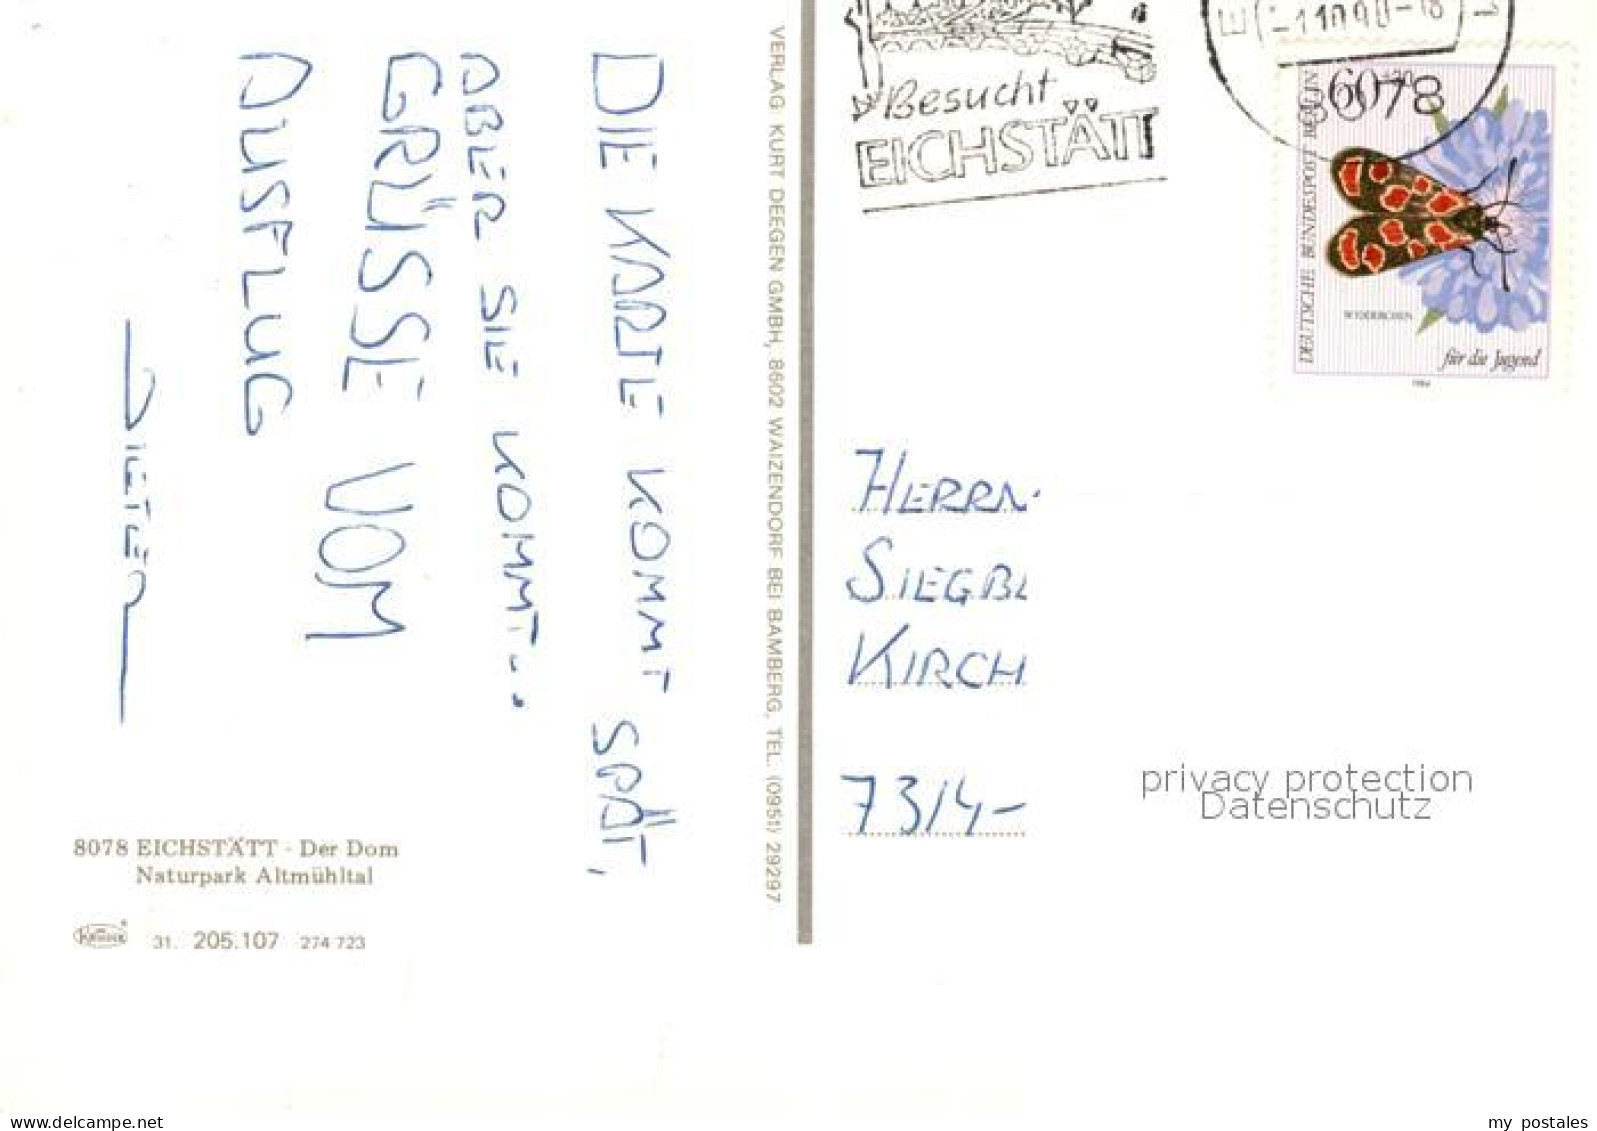 DIE KARTE KOMMT SPÄT,
ABER SIE KOMMT...
GRÜSSE VOM
AUSFLUG
DIETER
8078 EICHSTÄTT · Der Dom
Naturpark Altmühltal
31. 205.107 274 723
VERLAG KURT DEEGEN GMBH, 8602 WAIZENDORF BEI BAMBERG, TEL. (0951) 29297
Besucht
EICHSTÄTT
8078
60
DEUTSCHE BUNDESPOST BERLIN
für die Jugend
1984
HERRN
SIEGB
KIRCH
7314-
privacy protection
Datenschutz
delcampe.net
my_postales